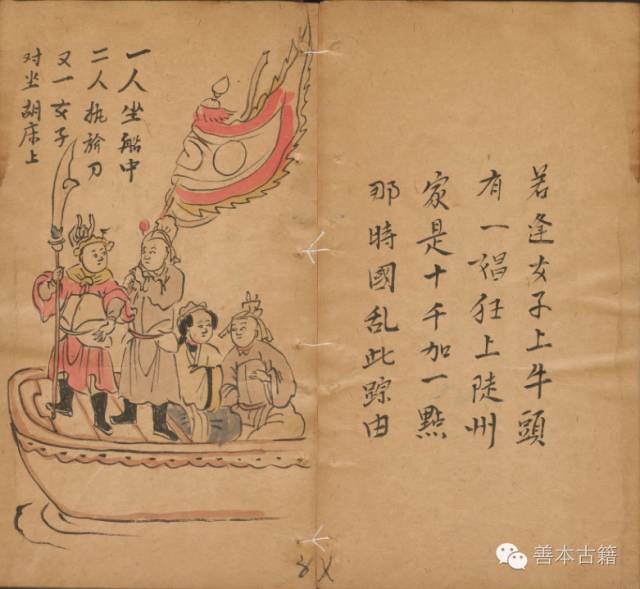 若逢女子上牛頭
有一狂上陡州
家是十千加一點
那時國乱此踪由
一人坐船中
二人执刀
又一女子
对坐胡床上
善本古籍